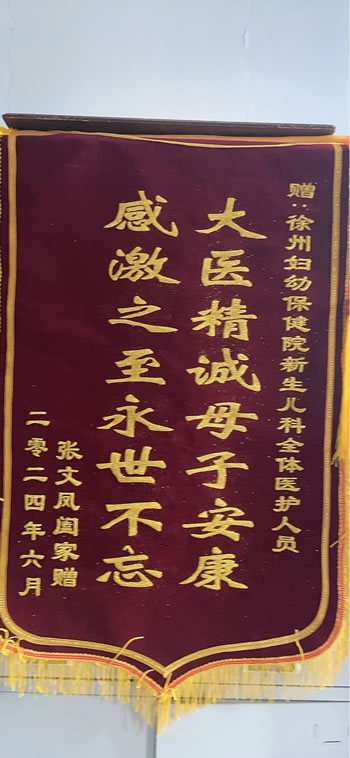 赠:徐州妇幼保健院新生儿科全体医护人员
大医精诚母子安康
感激之至永世不忘
张文凤阖家赠
二零二四年六月